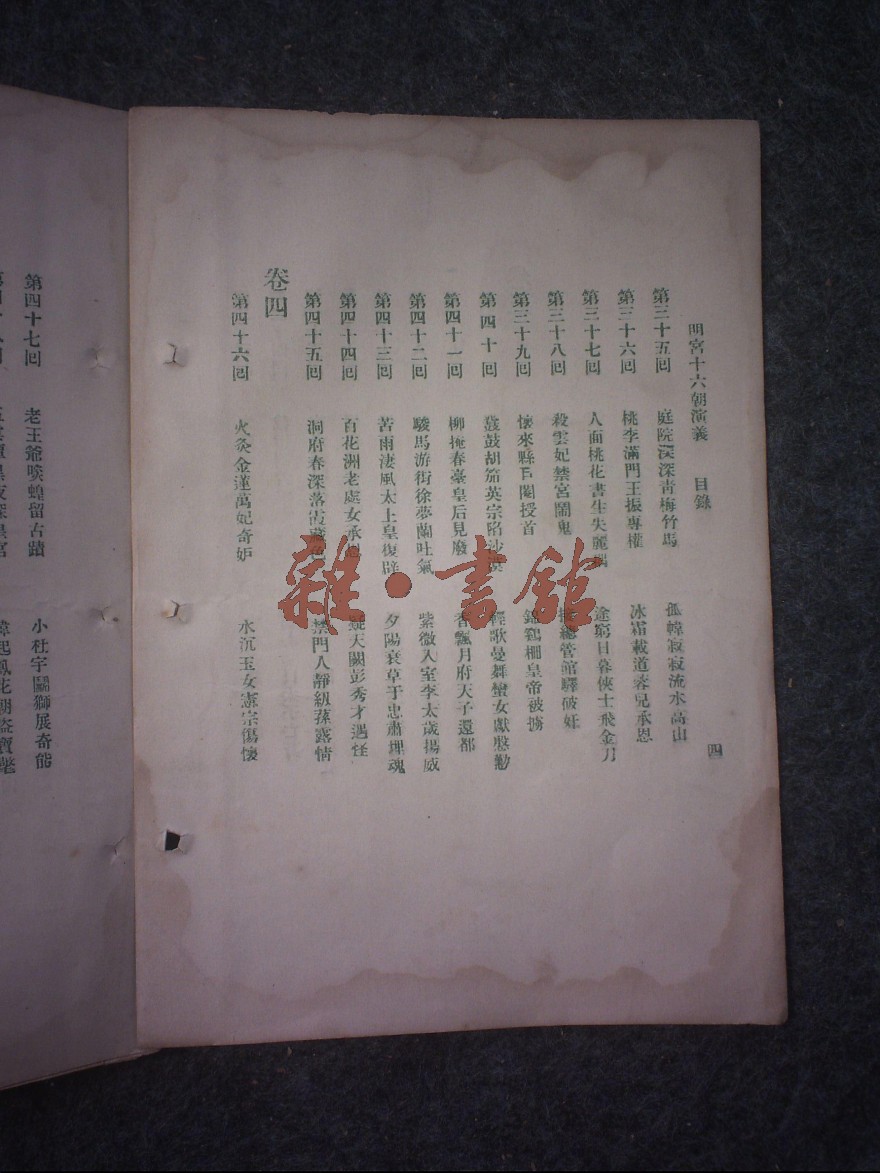 明宮十六朝演義 目錄 四
第三十五回 庭院深深靑梅竹馬 孤幃寂寂流水高山
第三十六回 桃李滿門王振專權 冰霜載道蓉兒承恩
第三十七回 人面桃花書生失麗 途窮日暮俠士飛金刀
第三十八回 殺雲妃禁宮鬧鬼 總管館驛破奸
第三十九回 懷來縣 閹授首 錦鶴棚皇帝被擄
第四十回 鼓胡笳英宗陷沙漠 輕歌曼舞蠻女獻慇懃
第四十一回 柳掩春臺皇后見廢 香飄月府天子還都
第四十二回 駿馬游街徐夢蘭吐氣 紫微入室李太歲揚威
第四十三回 苦雨淒風太上皇復辟 夕陽衰草于忠肅埋魂
第四十四回 百花洲老處女承恩 天闕彭秀才遇怪
第四十五回 洞府春深落霞藏 禁門人靜級蓀露情
卷四
第四十六回 火灸金蓮萬妃奇妒 水沉玉女憲宗傷懷
第四十七回 老王爺啖蝗留古蹟 小杜宇鬭獅展奇能